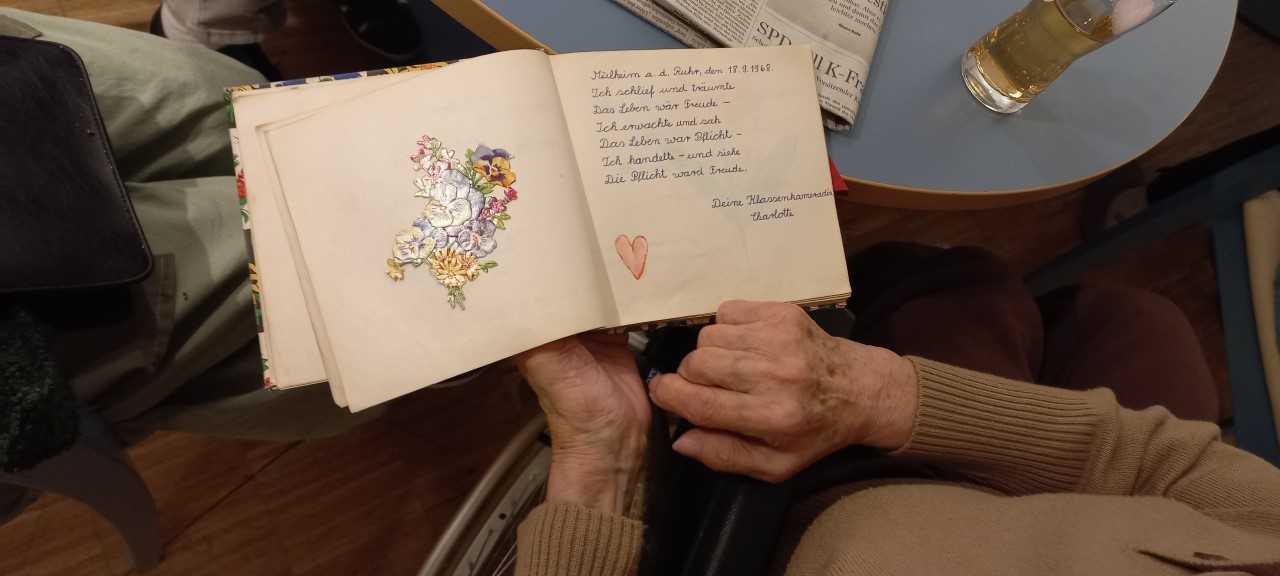 Mülheim a. d. Ruhr, den 18.9.1968.
Ich schlief und träumte
Das Leben wär Freude –
Ich erwachte und sah
Das Leben war Pflicht –
Ich handelte – und siehe
Die Pflicht ward Freude.
Deine Klassenkameradin
Charlotte
SPD
K-Fr